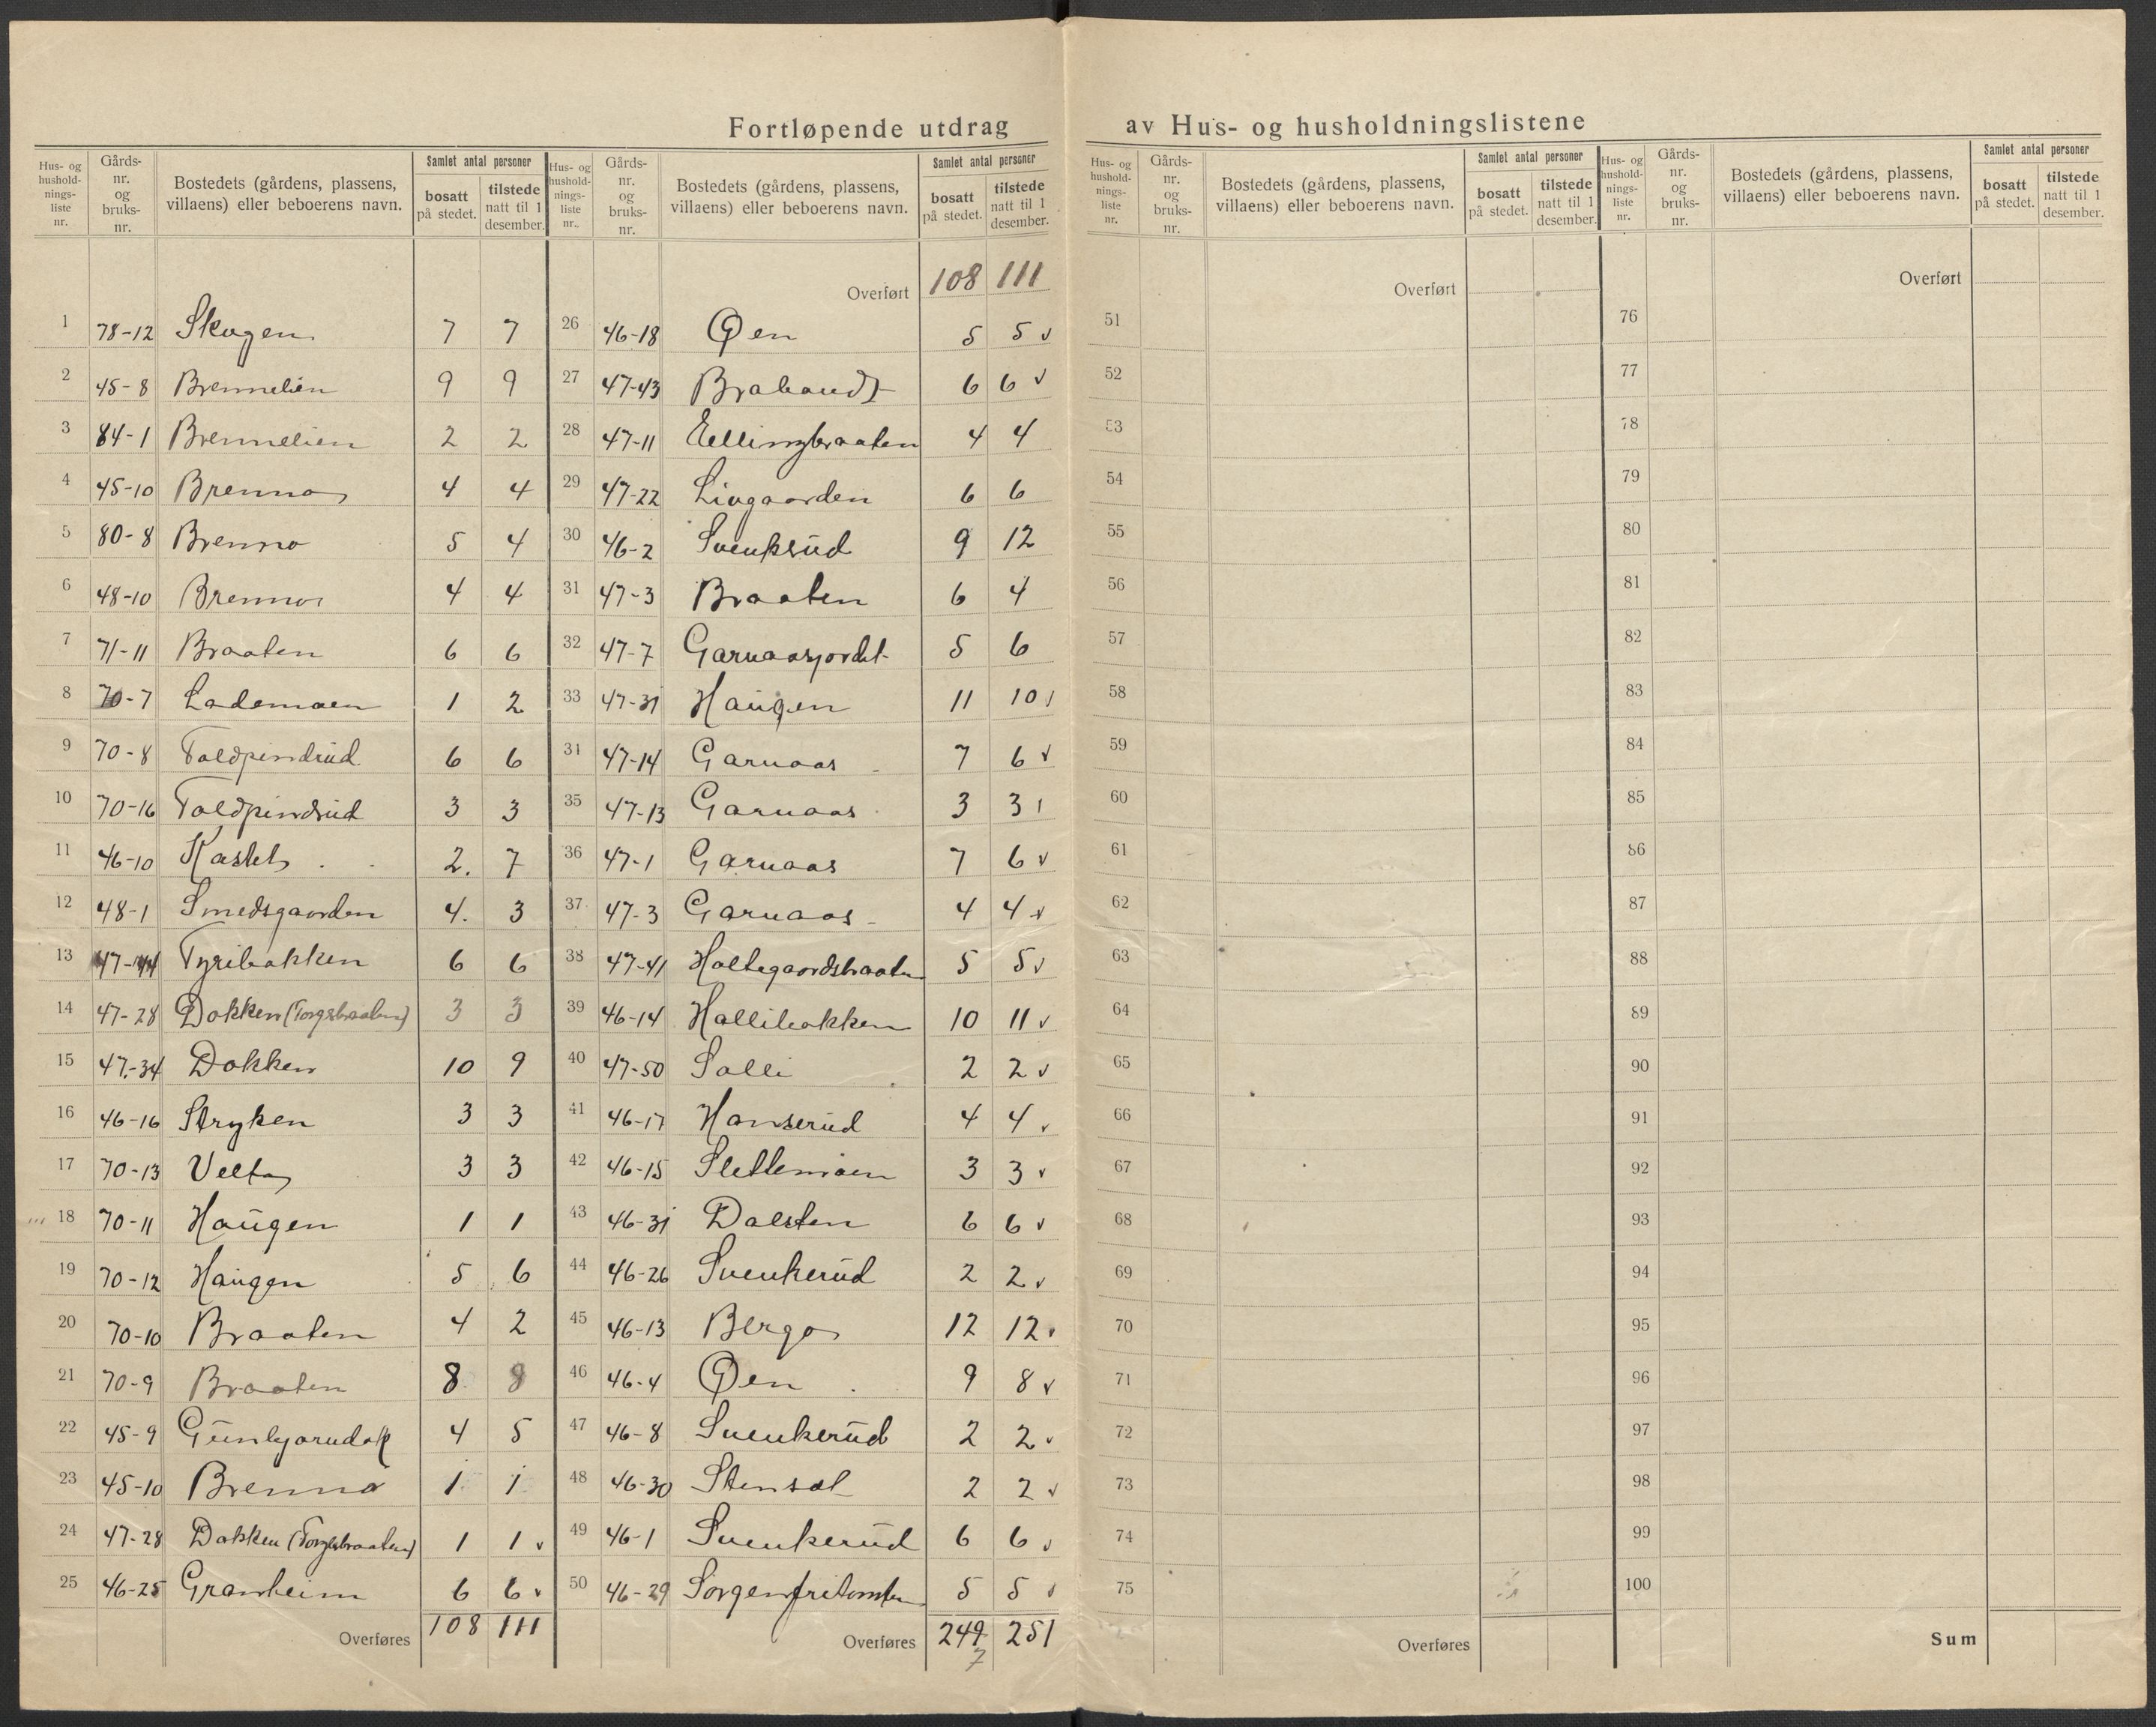 Fortløpende utdrag av Hus- og husholdningslistene
Hus- og husholdnings-liste nr. Gårds-nr. og bruks-nr. Bostedets (gårdens, plassens, villaens) eller beboerens navn. Samlet antal personer bosatt på stedet. tilstede natt til 1 desember.
1 78-12 Skogen 7 7
2 45-8 Brennelien 9 9
3 84-1 Brennelien 2 2
4 45-10 Brenna 4 4
5 80-8 Brenna 5 4
6 48-10 Brenna 4 4
7 71-11 Braaten 6 6
8 70-7 Lademoen 1 2
9 70-8 Toldpindrud 6 6
10 70-16 Toldpindrud 3 3
11 46-10 Kastet 2. 7
12 48-1 Smedsgaarden 4. 3
13 47-44 Tyribakken 6 6
14 47-28 Dokken (Torgsbraaten) 3 3
15 47-34 Dokken 10 9
16 46-16 Stryken 3 3
17 70-13 Velta 3 3
18 70-11 Haugen 1 1
19 70-12 Haugen 5 6
20 70-10 Braaten 4 2
21 70-9 Braaten 8 8
22 45-9 4 5
23 45-10 Brenna 1 1
24 47-28 Dokken (Torgsbraaten) 1 1 v
25 46-25 Granheim 6 6 v
Overføres 108 111
Hus- og husholdnings-liste nr. Gårds-nr. og bruks-nr. Bostedets (gårdens, plassens, villaens) eller beboerens navn. Samlet antal personer bosatt på stedet. tilstede natt til 1 desember.
Overført 108 111
26 46-18 Øen 5 5 v
27 47-43 Braband 6 6 v
28 47-11 Ellingbraaten 4 4
29 47-22 Livgaarden 6 6
30 46-2 Svenkrud 9 12
31 47-3 Braaten 6 4
32 47-7 Garnaasjordet 5 6
33 47-31 Haugen 11 10
34 47-14 Garnaas 7 6 v
35 47-13 Garnaas 3 3
36 47-1 Garnaas 7 6 v
37 47-3 Garnaas 4 4 v
38 47-41 Holtegaardsbraaten 5 5 v
39 46-14 Hallibakken 10 11 v
40 47-50 Solli 2 2 v
41 46-17 Hanserud 4 4 v
42 46-15 Slettemoen 3 3 v
43 46-31 Dalsten 6 6 v
44 46-26 Svenkerud 2 2 v
45 46-13 Berga 12 12 v
46 46-4 Øen 9 8 v
47 46-8 Svenkerud 2 2 v
48 46-30 Stensal 2 2 v
49 46-1 Svenkerud 6 6 v
50 46-29 Sorgenfritomten 5 5 v
Overføres 249 251
7
Hus- og husholdnings-liste nr. Gårds-nr. og bruks-nr. Bostedets (gårdens, plassens, villaens) eller beboerens navn. Samlet antal personer bosatt på stedet. tilstede natt til 1 desember.
Overført
51
52
53
54
55
56
57
58
59
60
61
62
63
64
65
66
67
68
69
70
71
72
73
74
75
Overføres
Hus- og husholdnings-liste nr. Gårds-nr. og bruks-nr. Bostedets (gårdens, plassens, villaens) eller beboerens navn. Samlet antal personer bosatt på stedet. tilstede natt til 1 desember.
Overført
76
77
78
79
80
81
82
83
84
85
86
87
88
89
90
91
92
93
94
95
96
97
98
99
100
Sum